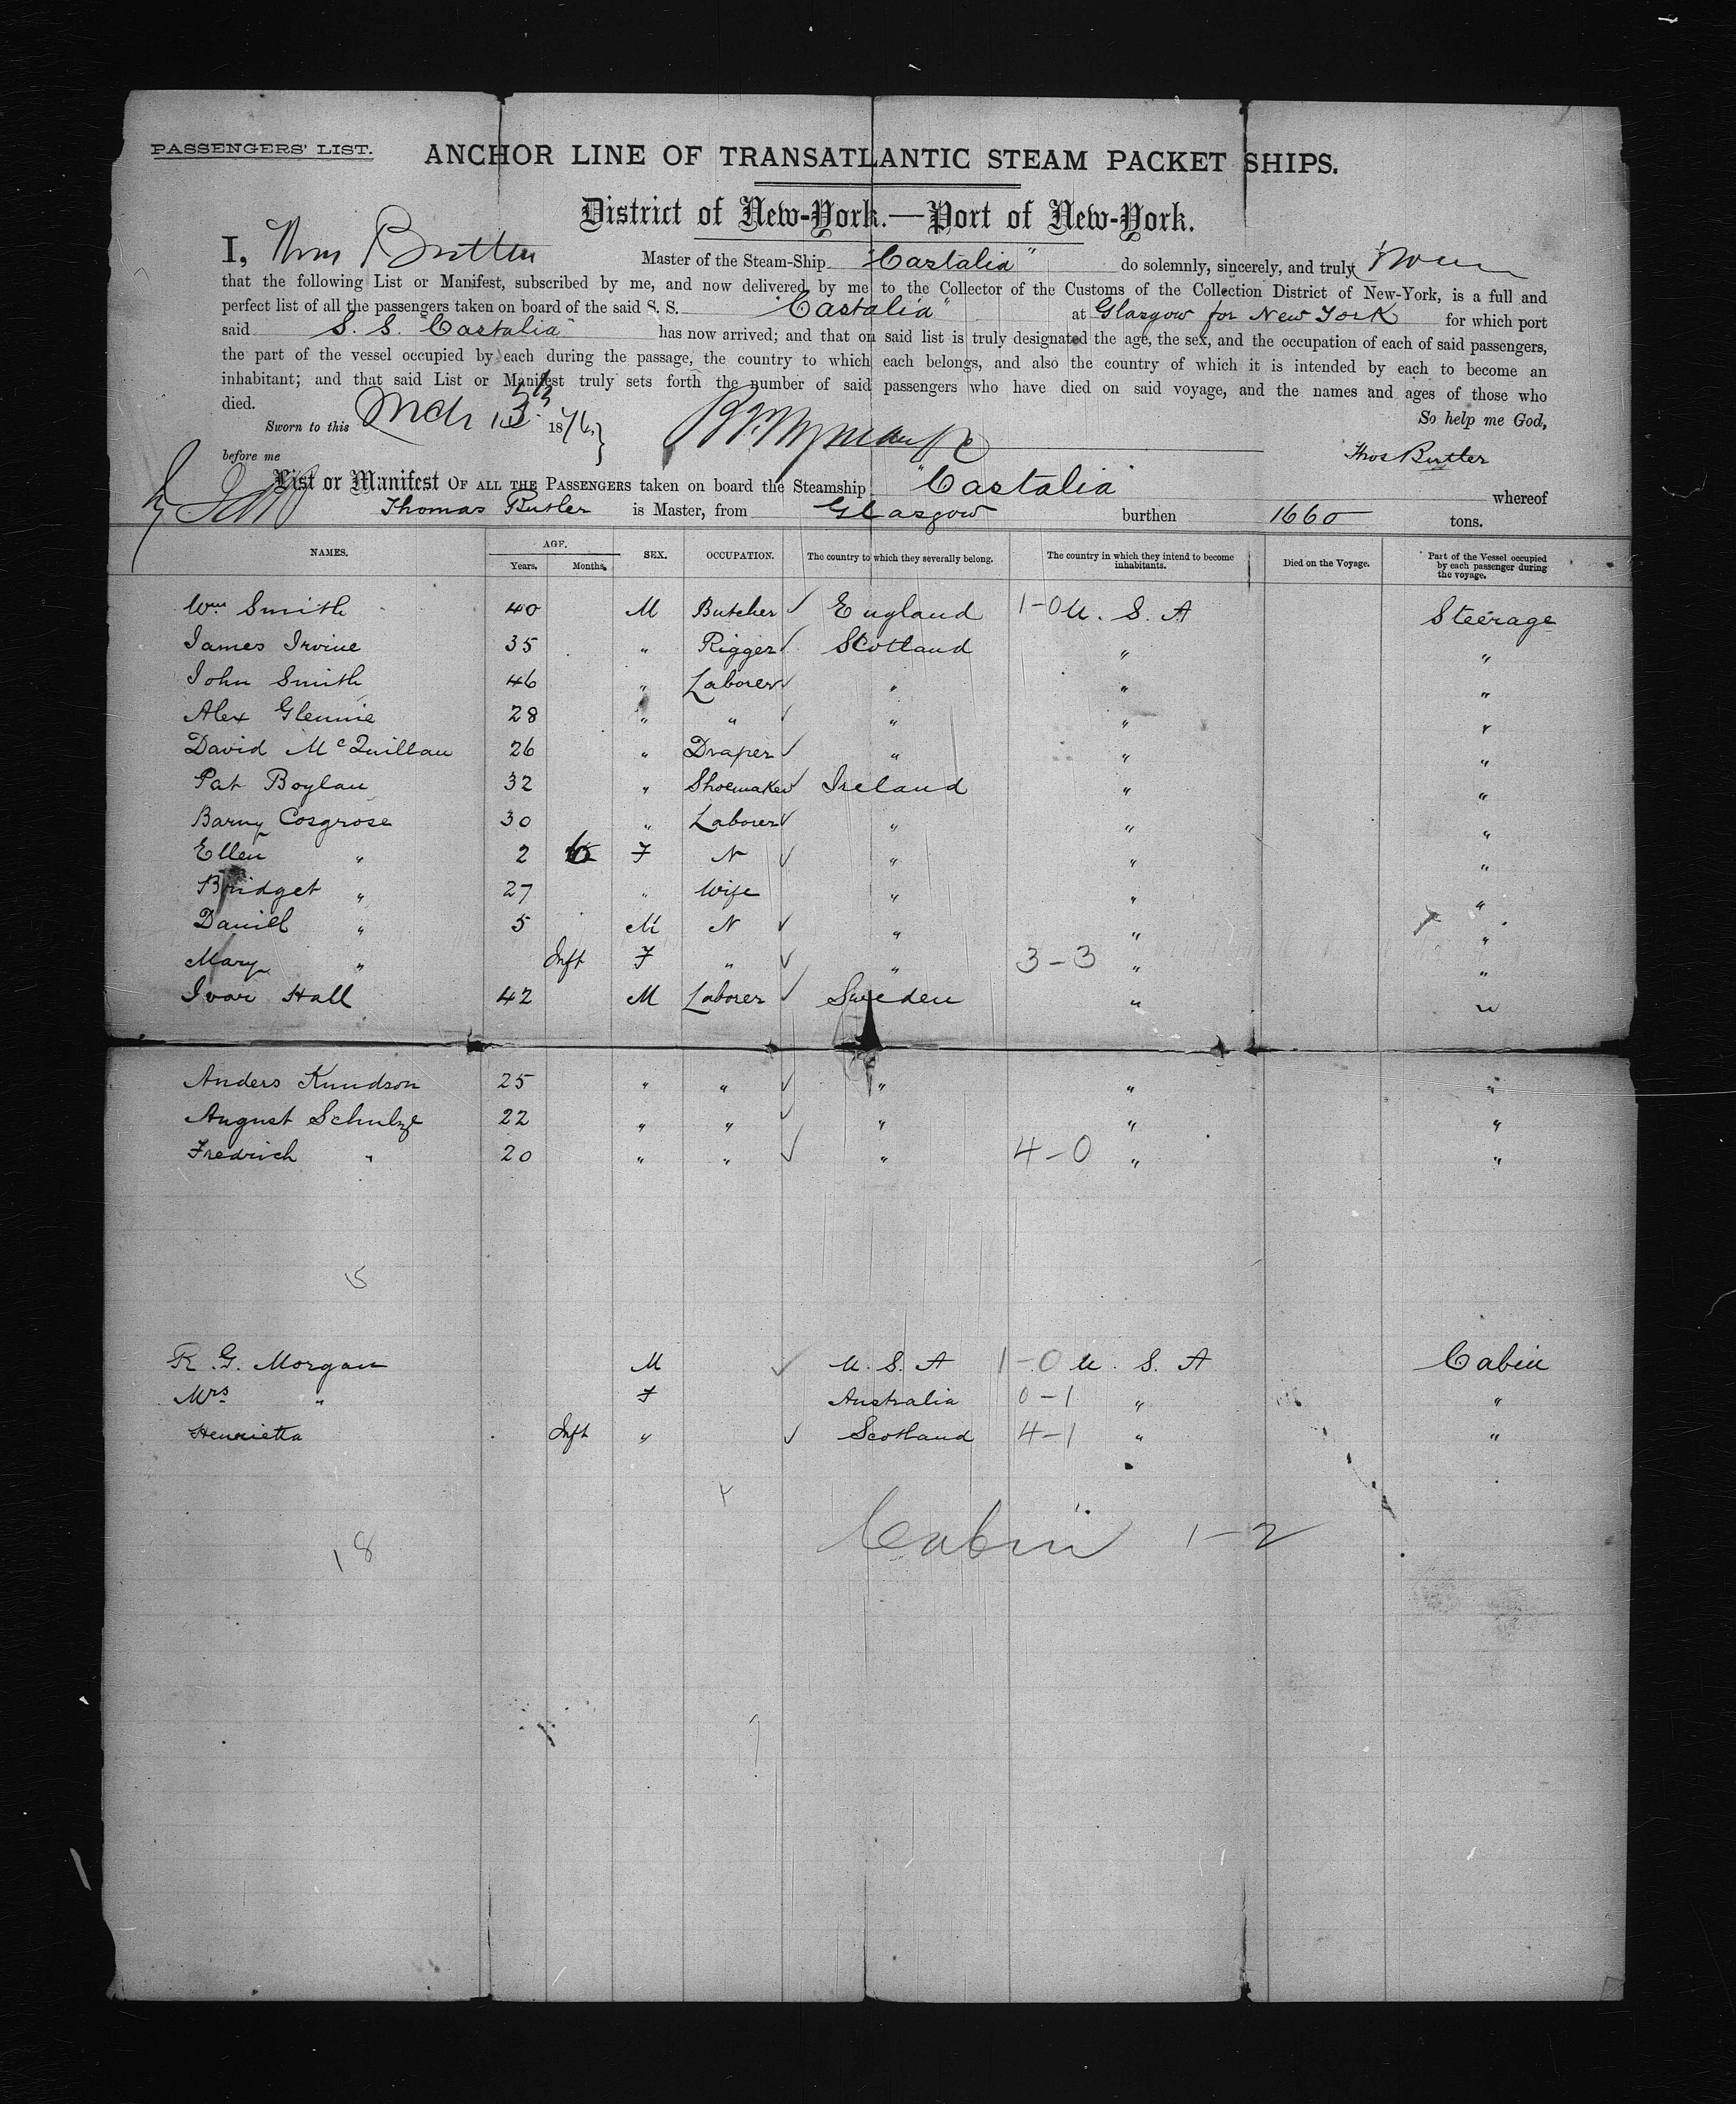 PASSENGERS' LIST.
ANCHOR LINE OF TRANSATLANTIC STEAM PACKET SHIPS.
District of New-York.—Port of New-York.
I, Thos Butler Master of the Steam-Ship "Castalia" do solemnly, sincerely, and truly swear
that the following List or Manifest, subscribed by me, and now delivered by me to the Collector of the Customs of the Collection District of New-York, is a full and
perfect list of all the passengers taken on board of the said S. S. "Castalia" at Glasgow for New York for which port
said S. S. "Castalia" has now arrived; and that on said list is truly designated the age, the sex, and the occupation of each of said passengers,
the part of the vessel occupied by each during the passage, the country to which each belongs, and also the country of which it is intended by each to become an
inhabitant; and that said List or Manifest truly sets forth the number of said passengers who have died on said voyage, and the names and ages of those who
died. So help me God,
Sworn to this Mch 13th 1876,
before me Thos Butler
List or Manifest OF ALL THE PASSENGERS taken on board the Steamship "Castalia" whereof
Thomas Butler is Master, from Glasgow burthen 1660 tons.
NAMES. AGE. Years. Months. SEX. OCCUPATION. The country to which they severally belong. The country in which they intend to become inhabitants. Died on the Voyage. Part of the Vessel occupied by each passenger during the voyage.
Wm Smith 40 M Butcher ✓ England 1-0 U. S. A Steerage
James Irvine 35 " Rigger ✓ Scotland " "
John Smith 46 " Laborer ✓ " " "
Alex Glennie 28 " " ✓ " " "
David McQuillan 26 " Draper ✓ " " "
Pat Boylan 32 " Shoemaker ✓ Ireland " "
Barny Cosgrose 30 " Laborer ✓ " " "
Ellen " 2 6 F N ✓ " " "
Bridget " 27 " Wife " " "
Daniel " 5 M N ✓ " " "
Mary " Inft F " ✓ " 3-3 " "
Ivar Hall 42 M Laborer ✓ Sweden " "
Anders Knudson 25 " " ✓ " " "
August Schulze 22 " " ✓ " " "
Fredrich " 20 " " ✓ " 4-0 " "
15
R. G. Morgan M ✓ U. S. A 1-0 U. S. A Cabin
Mrs " F Australia 0-1 " "
Henrietta Inft " ✓ Scotland 4-1 " "
Cabin 1-2
18